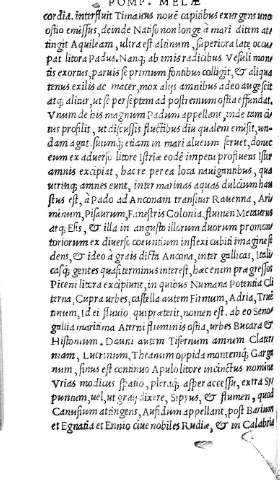 POMP. MELAE
cordia. interfluit Timauus nouē capitibus exurgens uno
ostio emissus, deinde Natiso non longe à mari ditem at
tingit Aquileam, ultra est altinum, superiora late occu-
pat litora Padus. Nanq; ab imis radicibus Vesuli monti
tis exortus, paruis se primum fontibus colligit, & aliqua
tenus exilis ac macer, mox alijs amnibus adeo augescit
atq; alitur, ut se per septem ad postremum ostia effundat.
Vnum de his magnum Padum appellant, inde tam ci
tus prosilit, ut discussis fluctibus diu qualem emisit, un-
dam agat. suumq; etiam in mari alueum seruet, donec
eum ex aduerso litore Istriæ eodē impetu profluens ister
amnis excipiat, hac re per ea loca nauigantibus, qua
utrinq; amnes eunt, inter marinas aquas dulcium hau-
stus est, à Pado ad Anconam transitur Rauenna, Ari
minum, Pisaurum, Fanestris Colonia, flumen Metaurus
atq; Esis, & illa in angusto illorum duorum promon
toriorum ex diuerso coeuntium inflexi cubiti imagine se
dens, & ideo à graijs dicta Ancona, inter gallicas, Itali
casq; gentes quasi terminus interest, hæc enim prægressos
Piceni litora excipiunt, in quibus Numana Potentia Cli
terna, Cupra urbes, castella autem Firmum, Adria, Truē
tinum, id ei fluuio, qui præterit, nomen est. ab eo Seno
gallia maritima Aterni fluminis ostia, urbes Bucara &
Histonium. Dauni autem Tifernum amnem Clater
niam, Lucrinum, Theanum oppida montemq; Garga
num, sinus est continuo Apulo litore incinctus nomine
Vrias modicus spatio, pleraq; asper accessu, extra Si
puntum, uel, ut graij dixere, Sipyus, & flumen, quod
Canusium attingens, Aufidum appellant, post Barium
et Egnatia et Ennio ciue nobiles Rudiæ, & in Calabria